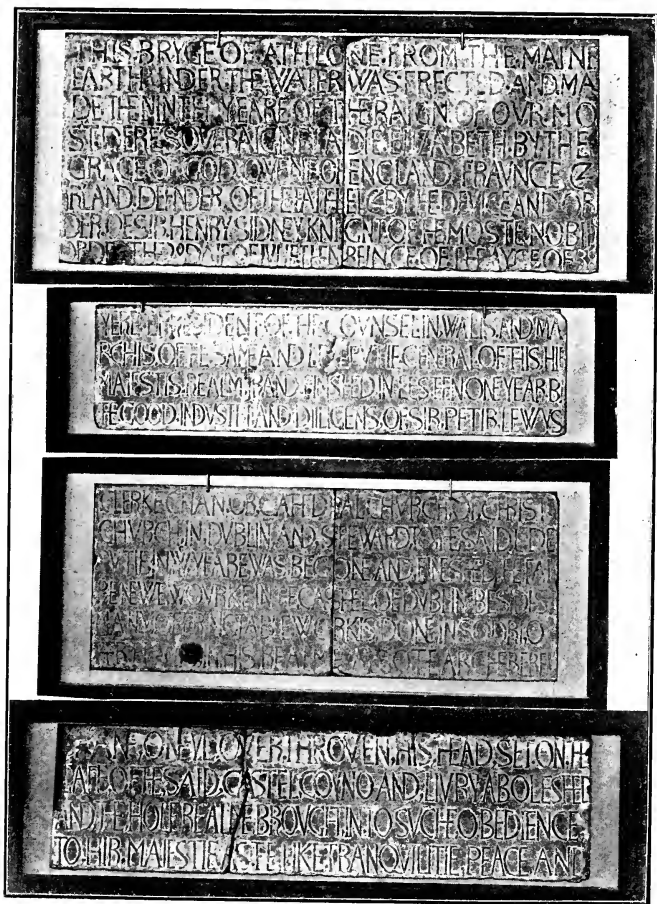 THIS·BRYGE·OF·ATHLONE·FROM·THE·MAINE
EARTH·UNDER·THE·WATER·WAS·ERECTED·AND·MA
DE·THE·NINTH·YEARE·OF·THE·RAIGN·OF·OVR·MO
ST·DERE·SOVERAIGNE·LADIE·ELIZABETH·BY·THE
GRACE·OF·GOD·QVENE·OF·ENGLAND·FRAVNCE·&
IRLAND·DEFNDER·OF·THE·FAITH·&C·BY·THE·DEVICE·AND·OR
DER·OF·SIR·HENRY·SIDNEY·KNIGHT·OF·THE·MOSTE·NOBIL
ORDER
PRESIDENT·OF·THE·COVNSEL·IN·WALIS·AND·MA
RCHIS·OF·THE·SAME·AND·L·DEPVTIE·GENERAL·OF·THIS·HIR
MAIESTIS·REALM·IRLAND·FINISHED·IN·LES·THEN·ONE·YEAR·BI
THE·GOOD·INDVSTRI·AND·DILIGENS·OF·SIR·PETIR·LEWYS
CLERKE·CHANTOR·CATHDRAL·CHVRCH·OF·CHRIST
CHVRCH·IN·DVBLIN·AND·STEWARD·TO·THE·SAID·L·DE
PVTIE·IN·YEARE·WAS·BEGONE·AND·FINESHED·THE·FAI
RE·NEWE·WOVRKE·IN·THE·CASTHEL·OF·DVBLIN·BESIDES
MANY·OTHER·NOTABLE·WORKIS·DONE·IN·SONDRI
THIS·REALM·ARCHE·REBEL
SHANE·ONEYL·OVERTHROVEN·HIS·HEAD·SET·ON·THE
GATE·OF·THE·SAID·CASTEL·COYNO·AND·LIVRY·ABOLESHED
AND·THE·HOLE·REALME·BROVGHT·INTO·SVCHE·OBEDIENCE
TO·HIR·MAIESTIE·AS·THE·LIKE·TRANQVILITIE·PEACE·AND